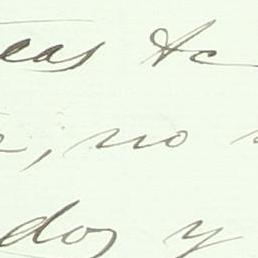 eas &c
; no
dos y